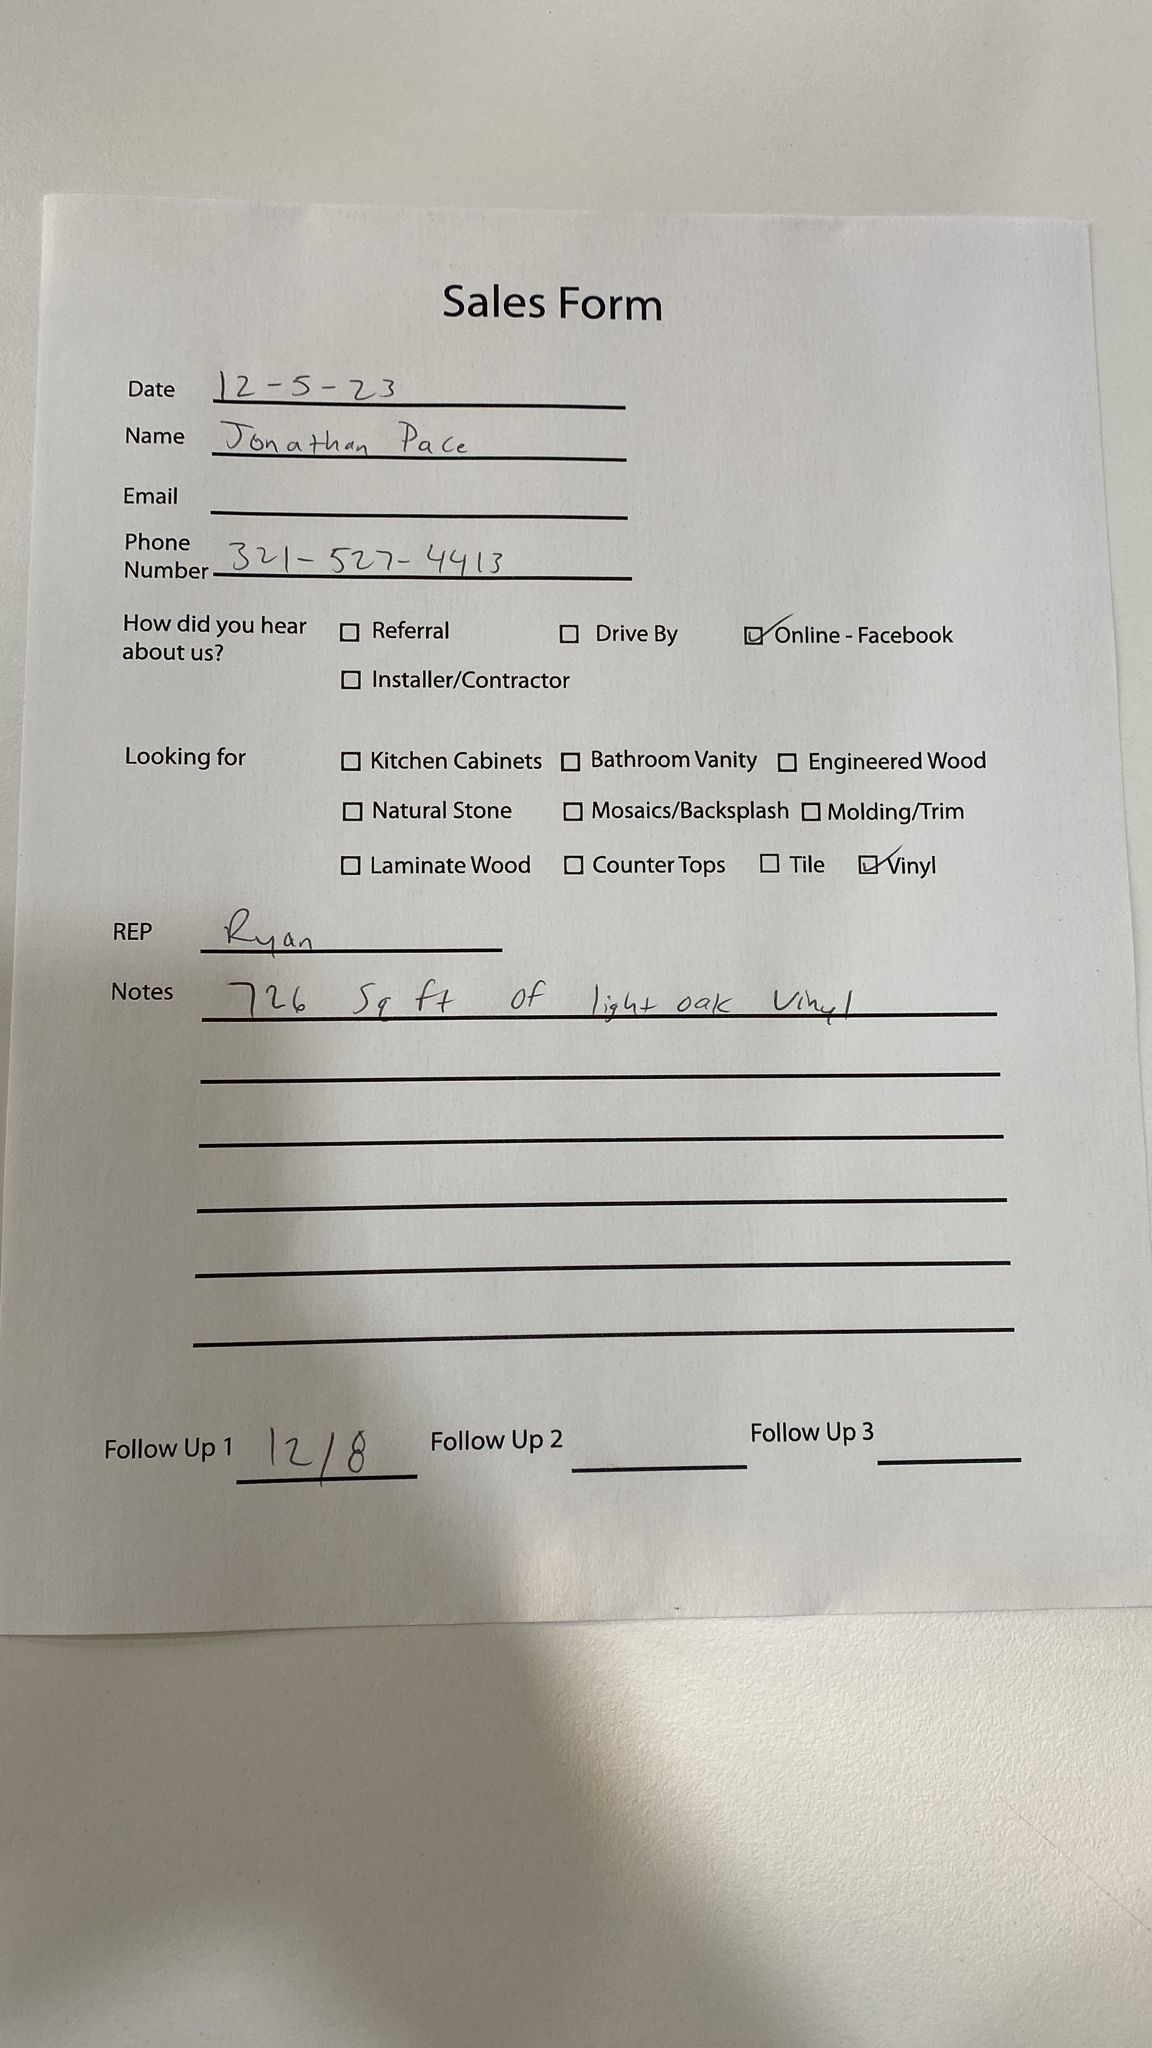 Sales Form
Date 12-5-23
Name Jonathan Pace
Email
Phone
Number 321-527-4413
How did you hear ☐ Referral ☐ Drive By ☑ Online - Facebook
about us?
☐ Installer/Contractor
Looking for ☐ Kitchen Cabinets ☐ Bathroom Vanity ☐ Engineered Wood
☐ Natural Stone ☐ Mosaics/Backsplash ☐ Molding/Trim
☐ Laminate Wood ☐ Counter Tops ☐ Tile ☑ Vinyl
REP Ryan
Notes 726 Sq ft of light oak Vinyl
Follow Up 1 12/8 Follow Up 2 Follow Up 3